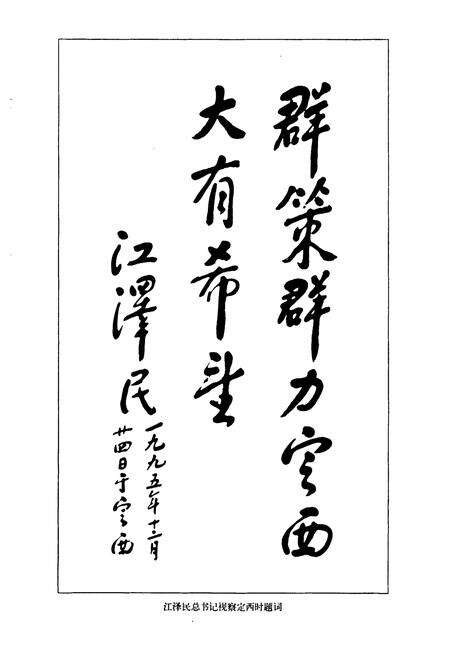 群策群力定西
大有希望
江泽民
一九九五年十二月
廿四日于定西
江泽民总书记视察定西时题词